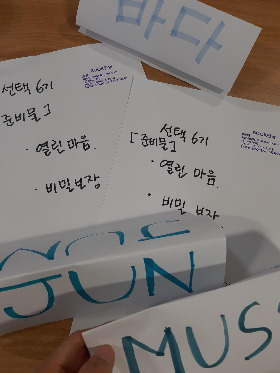 바다
선택 6기
준비물]
· 열린 마음.
· 비밀보장
선택 6기
[준비물]
· 열린 마음.
· 비밀 보장
JUN
MUS